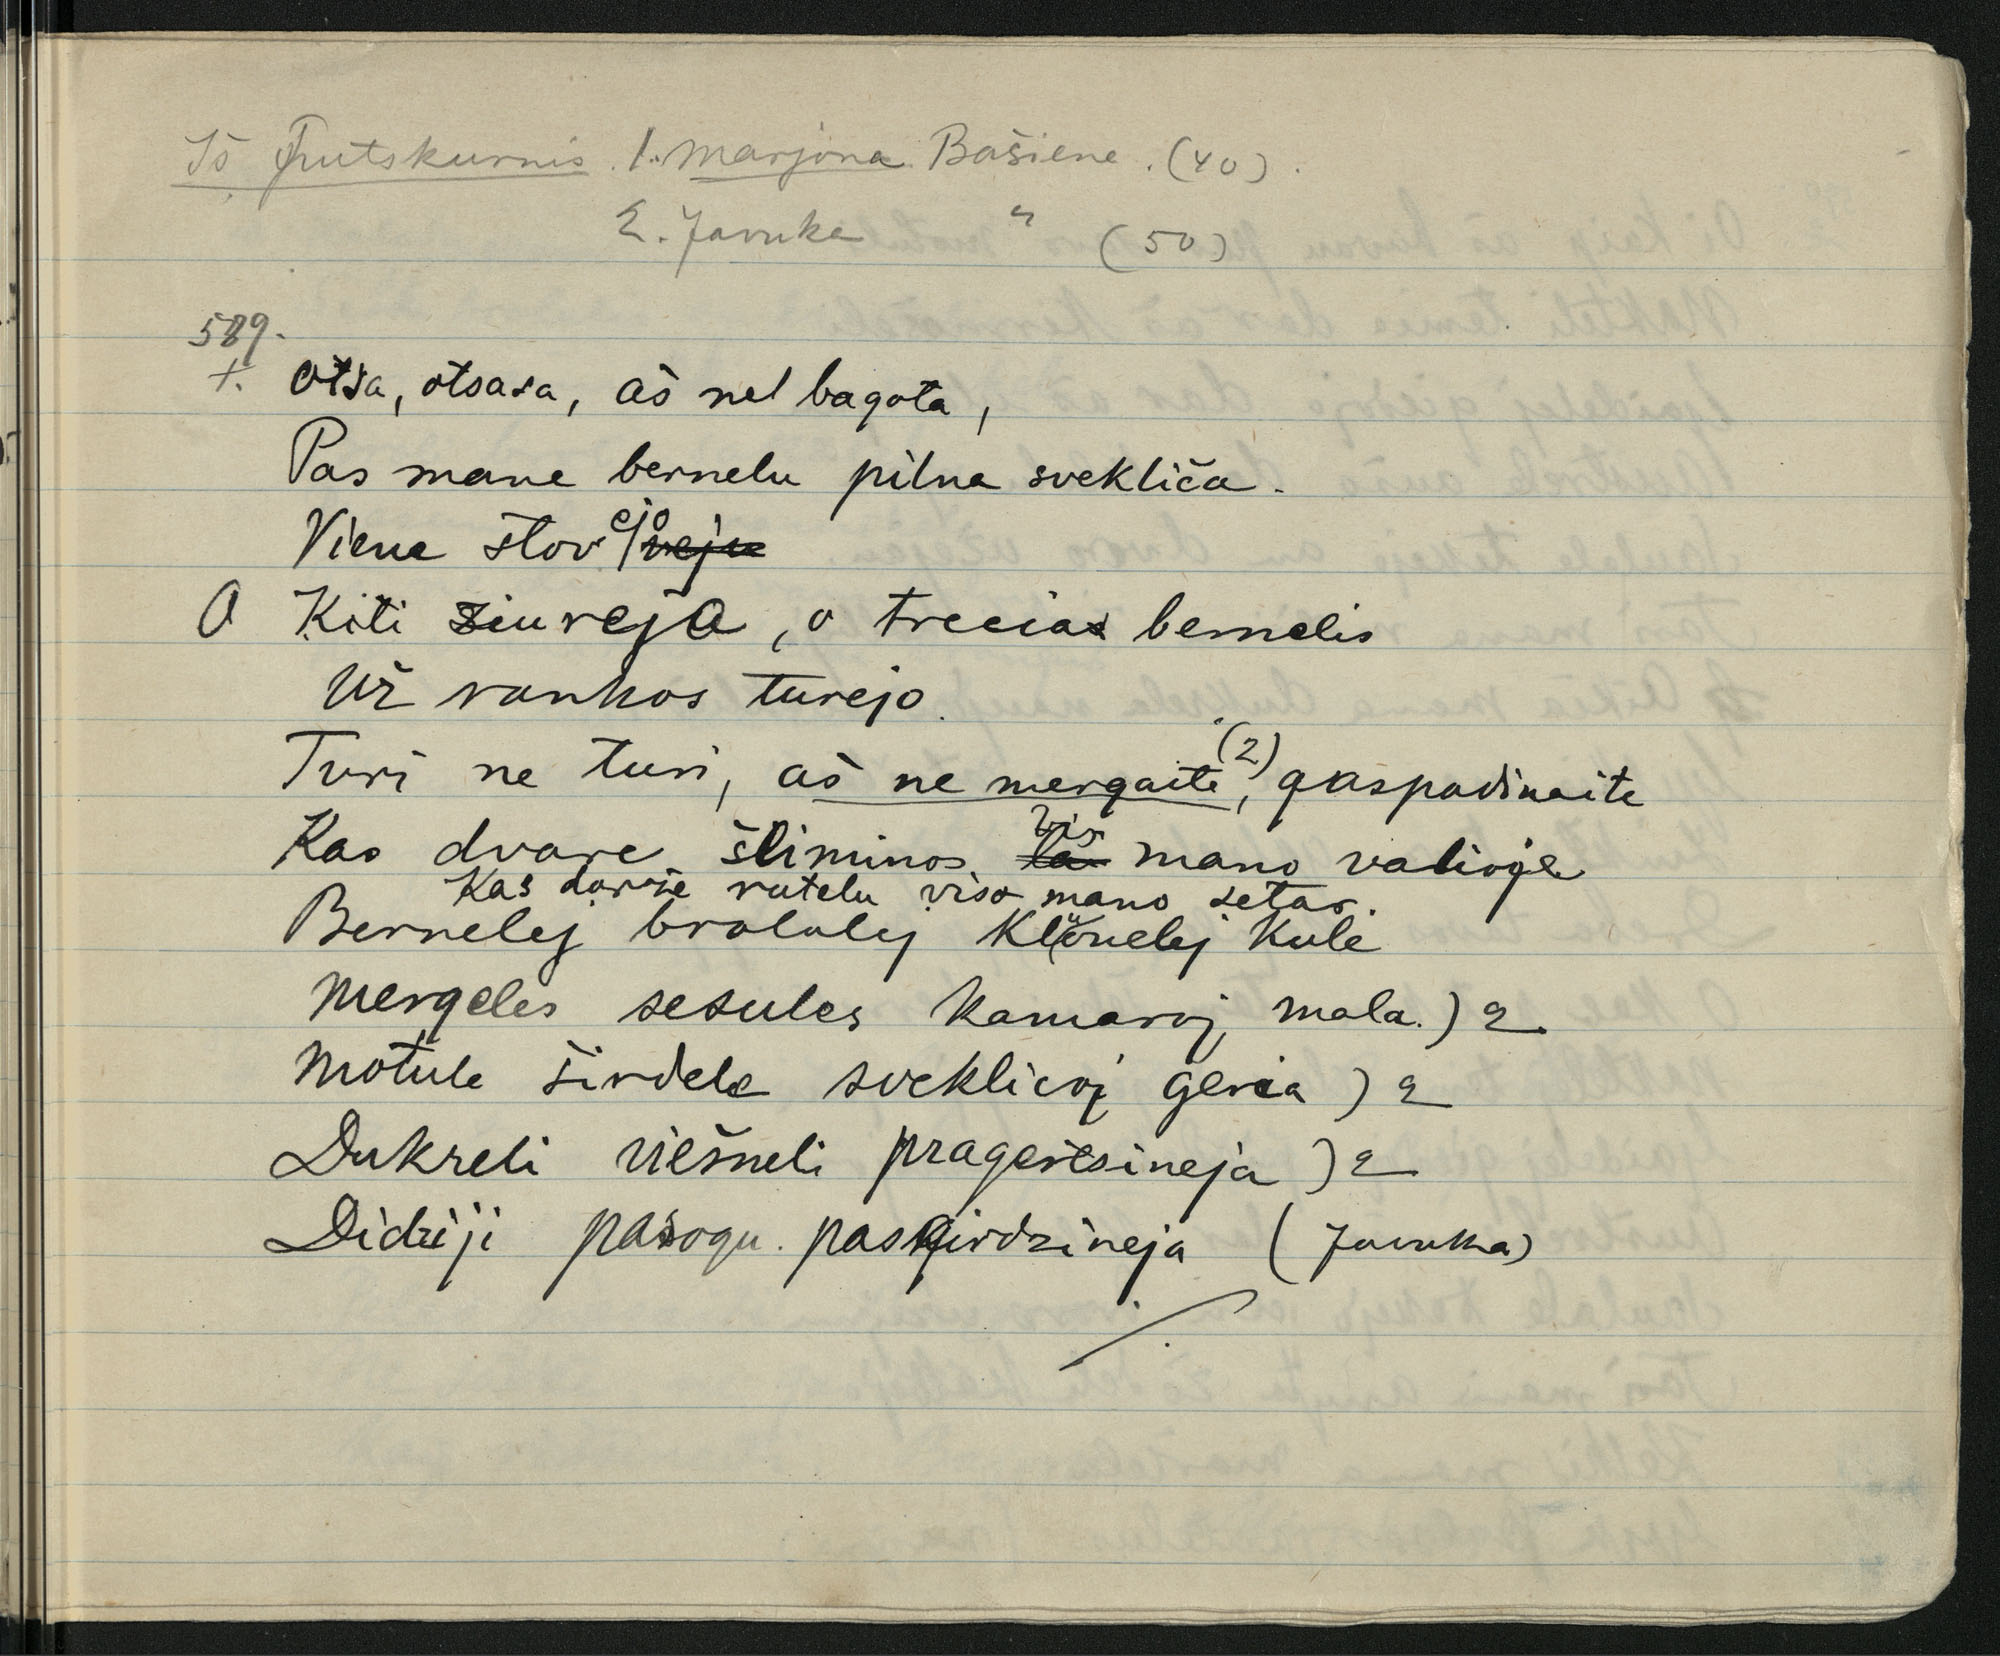 Iš Trutskurnis. 1. Marjona Bašiene. (40).
2. Januka " (50)
589.
+. Otsa, otsasa, aš nel bagota,
Pas mane bernelu pilna svekliča.
Viena stov ejo veju
O Kiti ziureja, o trecias bernelis
Už rankos turejo.
Turi ne turi, aš ne mergaite (2), gaspadinaite
Kas dvare šliminos tas vis mano valioje
Kas darže rutelu viso mano setas.
Bernelej brolulej Klonelej Kule
Mergeles sesules kamaroj mala.) 2
Motule širdele sveklicoj geria ) 2
Dukreli viešneli pragertsineja ) 2
Didziji pasogu. pasgirdzineja (Januka)